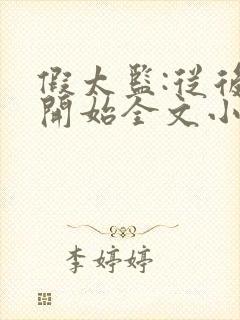 假太監:從後
開始全文小
李婷婷